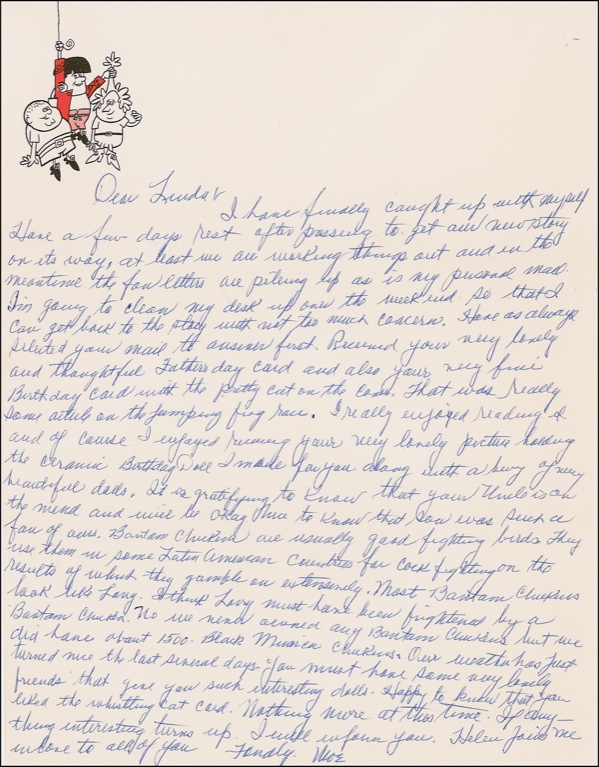 Dear Linda &
I have finally caught up with myself
Have a few days rest after passing to get our new story
on its way, at least we are working things out and in the
meantime the fan letters are pileing up as is my personal mail.
I'm going to clean my desk up over the weekend. So that I
can get back to the story with not too much concern. Have as always
selected your mail to answer first. Received your very lovely
and thoughtful Fathers day card and also your very fine
Birthday card with the pretty cat on the cover. That was really
some article on the jumping frog race. I really enjoyed reading it
and of course I enjoyed your very lovely picture holding
the ceramic Birthday Doll I made for you along with a bevy of very
beautiful dolls. It is gratifying to know that your Uncle is on
the mend and will be okay. Nice to know that Son was such a
fan of ours. Bantam Chickens are usually good fighting birds. They
use them in some Latin American Countries for cock fighting on the
results of which they gamble on extensively. Most Bantam Chickens
look like Larry. I think Larry must have been frightened by a
Bantam Chicken. No we never owned any Bantam Chickens but we
did have about 1500 Black Minorca Chickens. Our weather has just
turned nice the last several days. You must have some very lovely
friends that give you such interesting dolls. Happy to know that you
liked the whistling cat card. Nothing more at this time. If any-
thing interesting turns up. I will inform you. Helen Joins me
in love to all of you Fondly. Moe